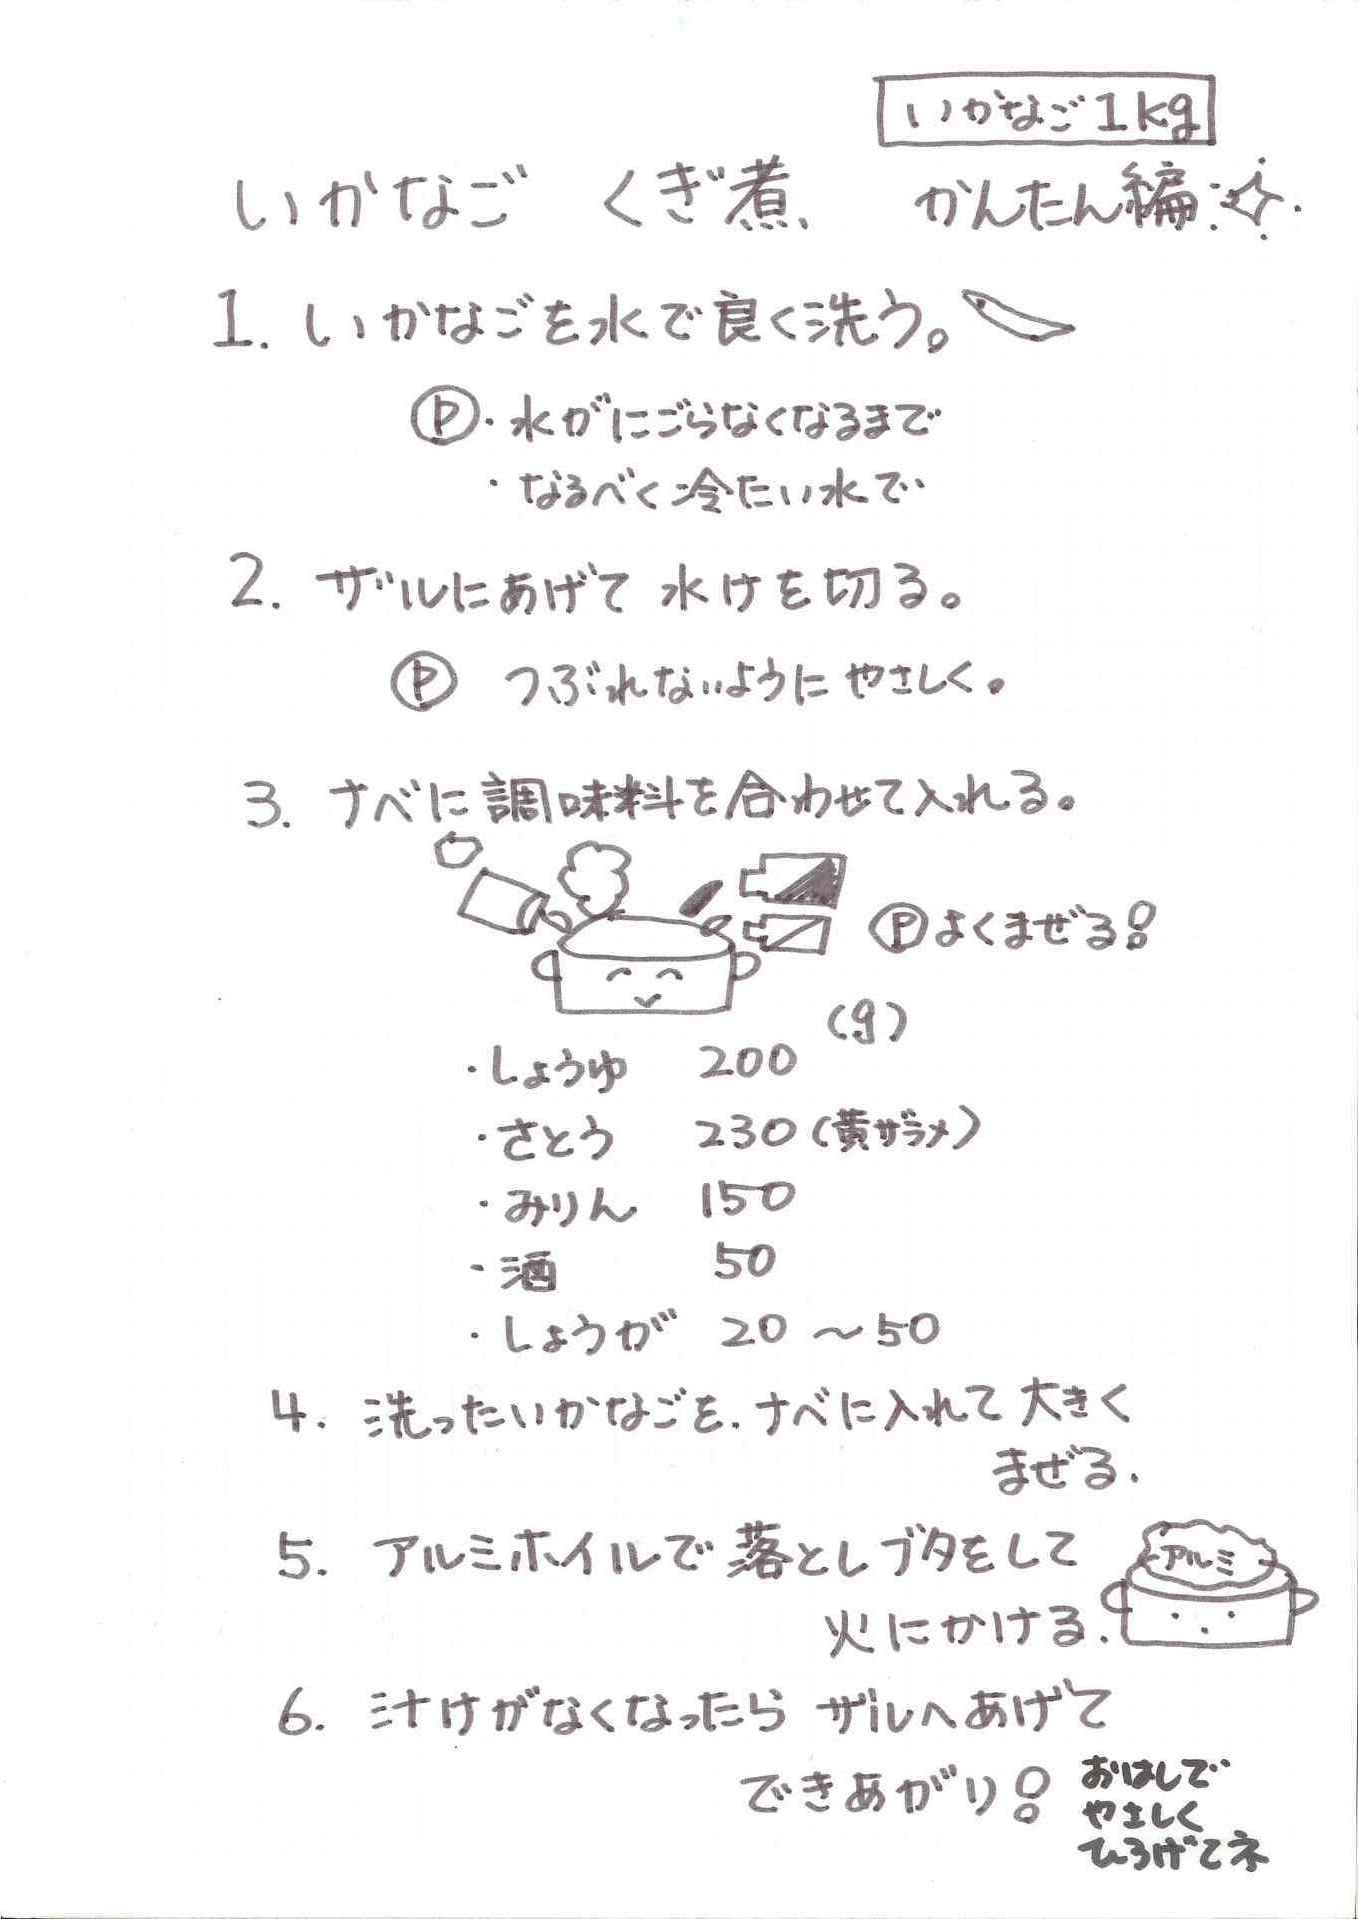 いかなご1kg
いかなご くぎ煮 かんたん編
1. いかなごを水で良く洗う。
Ⓟ・水がにごらなくなるまで
・なるべく冷たい水で
2. ザルにあげて 水けを切る。
Ⓟ つぶれないように やさしく。
3. ナベに調味料を合わせて入れる。
Ⓟよくまぜる!
(g)
・しょうゆ 200
・さとう 230(黄ザラメ)
・みりん 150
・酒 50
・しょうが 20〜50
4. 洗ったいかなごを、ナベに入れて 大きく
まぜる.
5. アルミホイルで 落としブタをして
アルミ
火にかける.
6. 汁けがなくなったら ザルへあげて
できあがり!
おはしで
やさしく
ひろげてネ